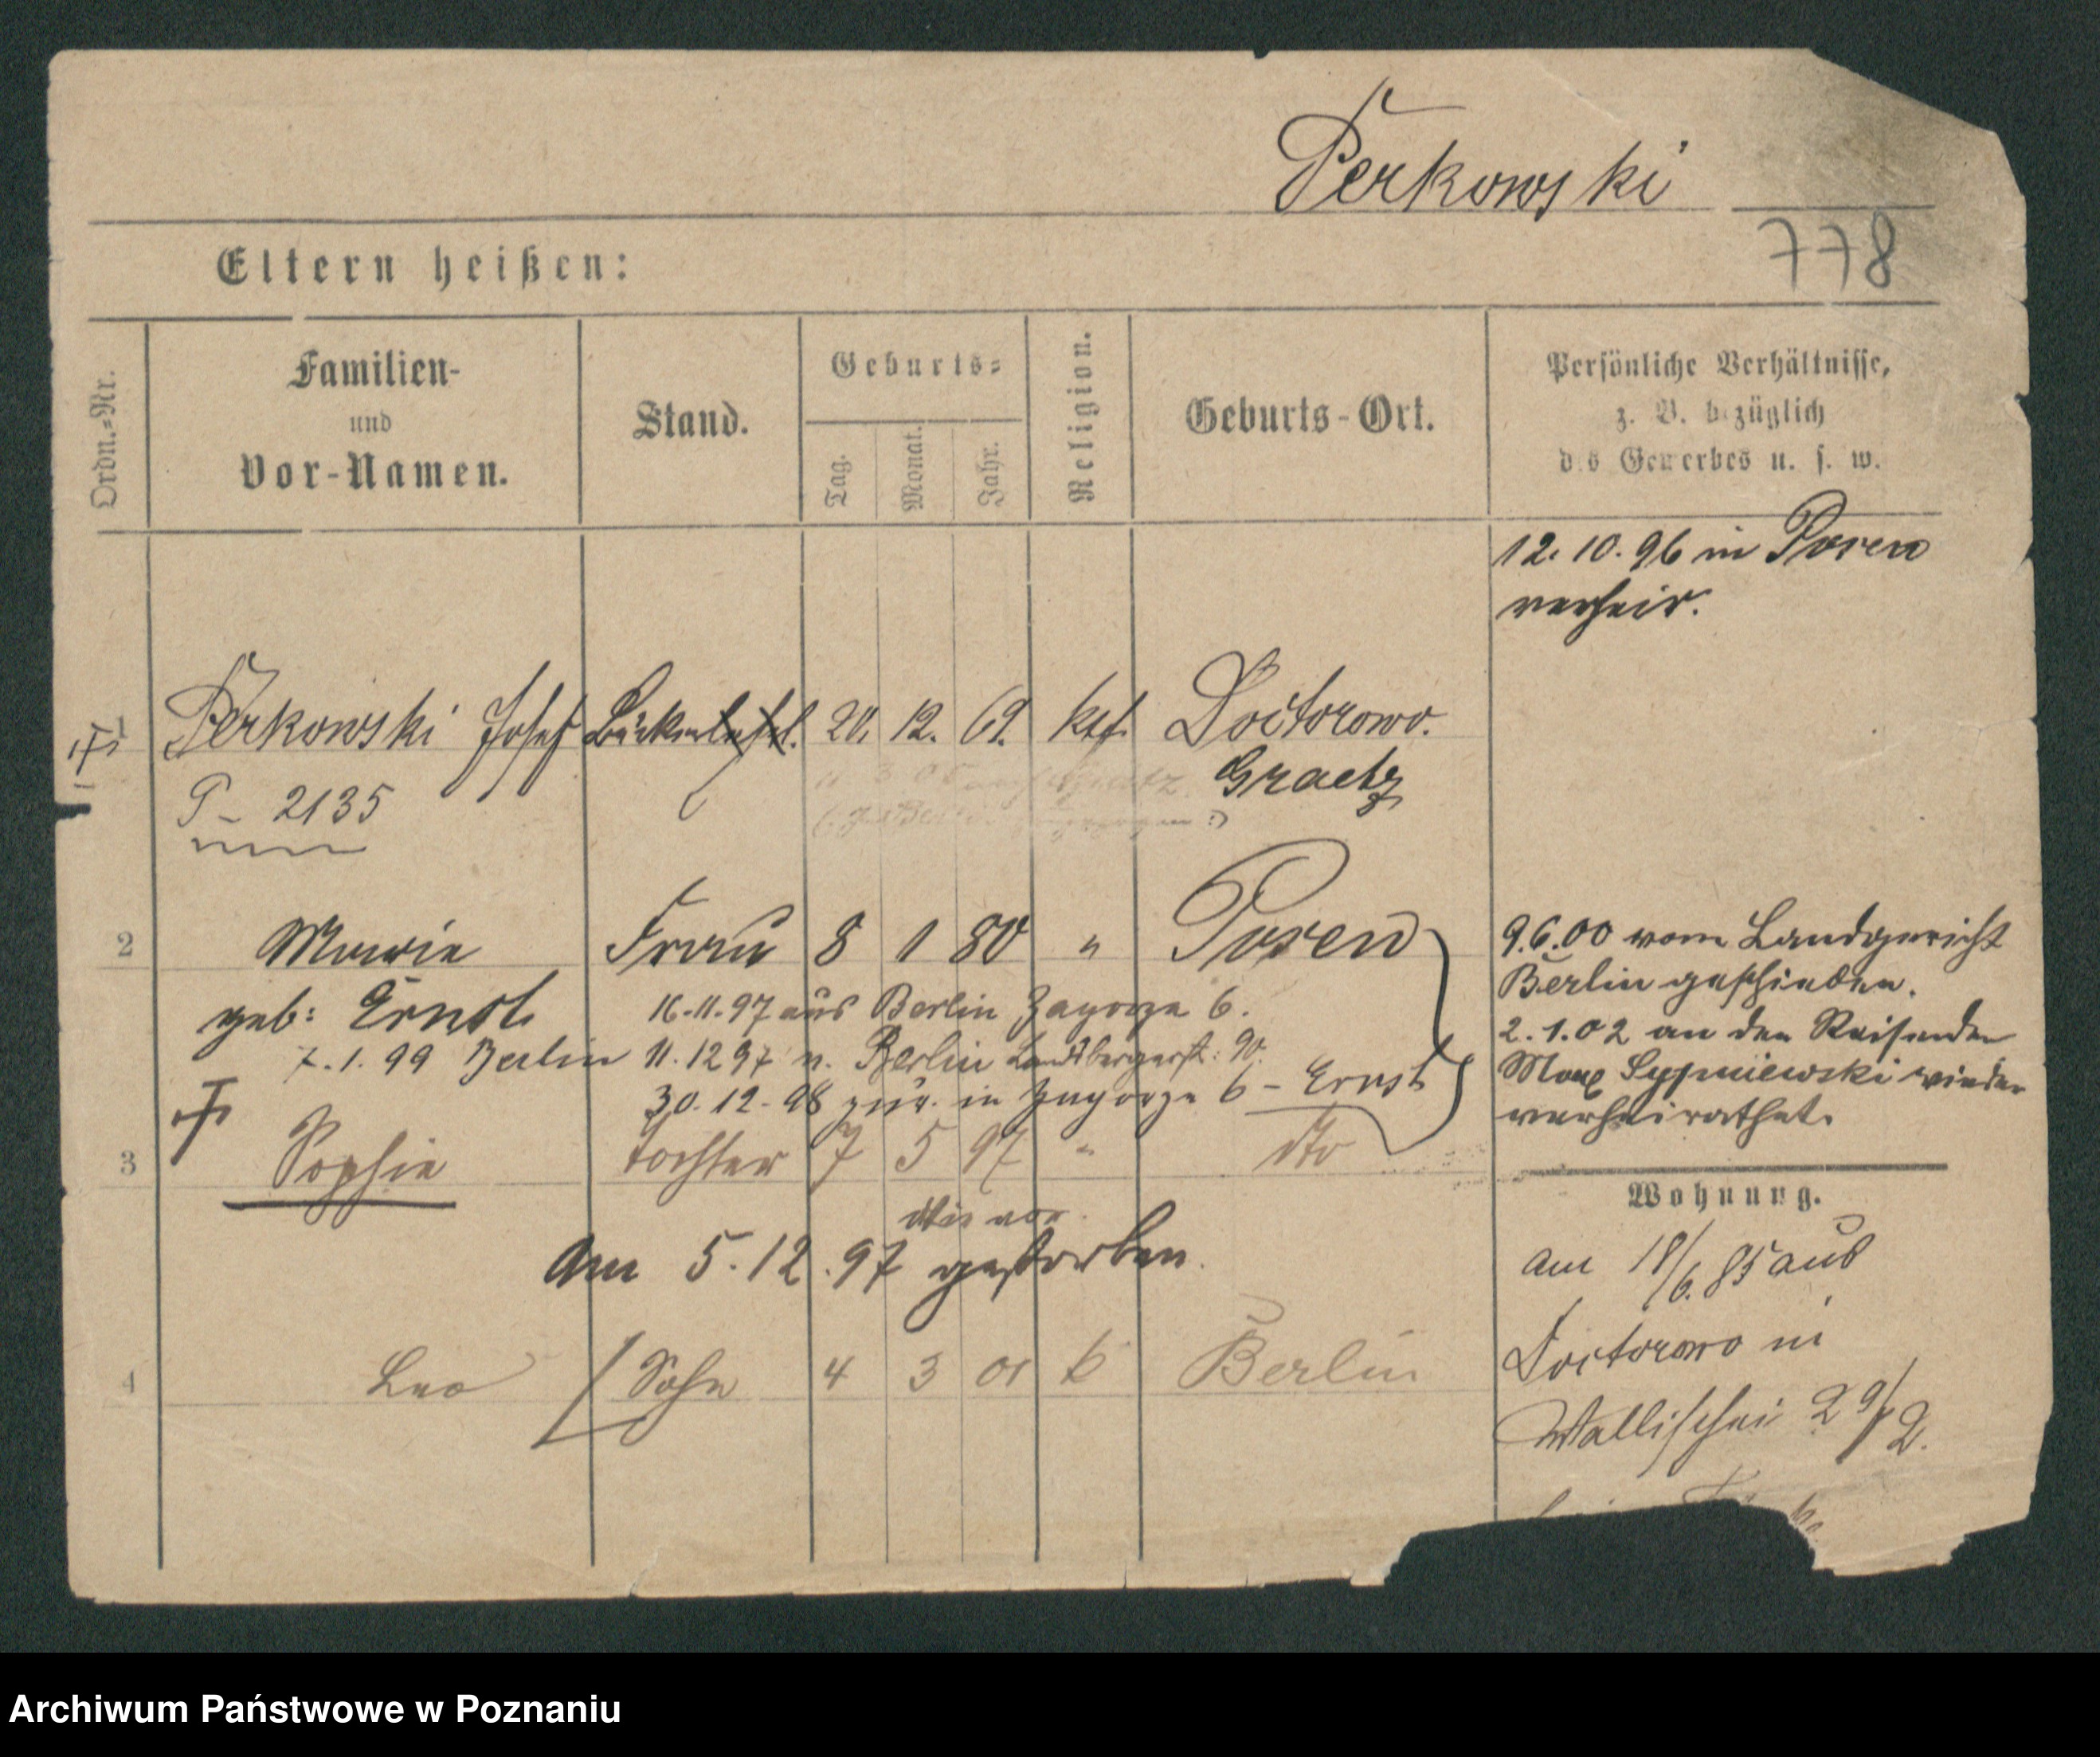 Perkowski
778
Eltern heißen:
Ordn.-Nr.
Familien-
und
Vor-Namen.
Stand.
Geburts-
Tag.
Monat.
Jahr.
Religion.
Geburts-Ort.
Persönliche Verhältnisse,
z. B. bezüglich
des Gewerbes u. s. w.
12. 10. 96 in Posen
verheir.
1 Perkowski Josef Bäcker 12. 69. kath. Doctorowo.
Graetz
P - 2135
2 Marie Frau 8 1 80 " Posen
geb: Ernst
16.11.97 aus Berlin Zagorze 6.
7.1.99 Berlin 11.12 97 n. Berlin Landsbergerst. 90.
30.12.98 zur. in Zagorze 6 - Ernst
9.6.00 vom Landgericht
Berlin geschieden.
2.1.02 an den Reisenden
Max wieder
verheirathet.
3 Sophie Tochter 7 5 97 " dto
am 5.12.97 gestorben.
4 Leo Sohn 4 3 01 k Berlin
Wohnung.
am 18/6. 85 aus
Doctorowo in
Wallischei 29/2.
Archiwum Państwowe w Poznaniu